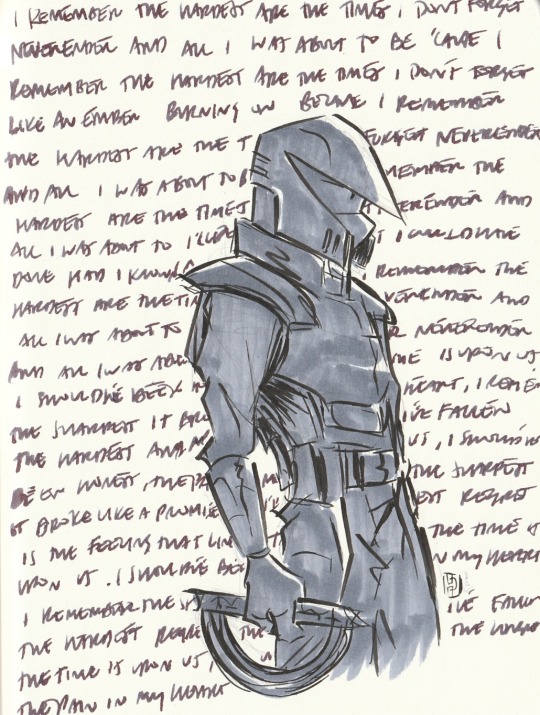 I REMEMBER THE HARDEST ARE THE TIMES I DON'T FORGET
NEVERENDER AND ALL I WAS ABOUT TO BE 'CAUSE I
REMEMBER THE HARDEST ARE THE TIMES I DON'T FORGET
LIKE AN EMBER BURNING ON BECAUSE I REMEMBER
THE HARDEST ARE THE T FORGET NEVERENDER
AND ALL I WAS ABOUT TO B MEMBER THE
HARDEST ARE THE TIMES ERENDER AND
ALL I WAS ABOUT TO I COULD HAVE
DONE HAD I I REMEMBER THE
HARDEST ARE THE TI VERENDER AND
ALL I WAS ABOUT TO R NEVERENDER
AND ALL I WAS ABO ME IS UPON US
I SHOULD'VE BEEN HEART, I REME
THE SHARPEST IT BRO I'VE FALLEN
THE HARDEST AND US, I SHOULD'VE
BEEN HONEST, THE THE SHARPEST
IT BROKE LIKE A PROMISE EST REGRET
IS THE FEELING THAT THE TIME IS
UPON US. I SHOULD'VE BEE IN MY HEART
I REMEMBER THE S I'VE FALLEN
THE HARDEST REGRE THE THE HARDEST
THE TIME IS UPON US,
THE PAIN IN MY HEART